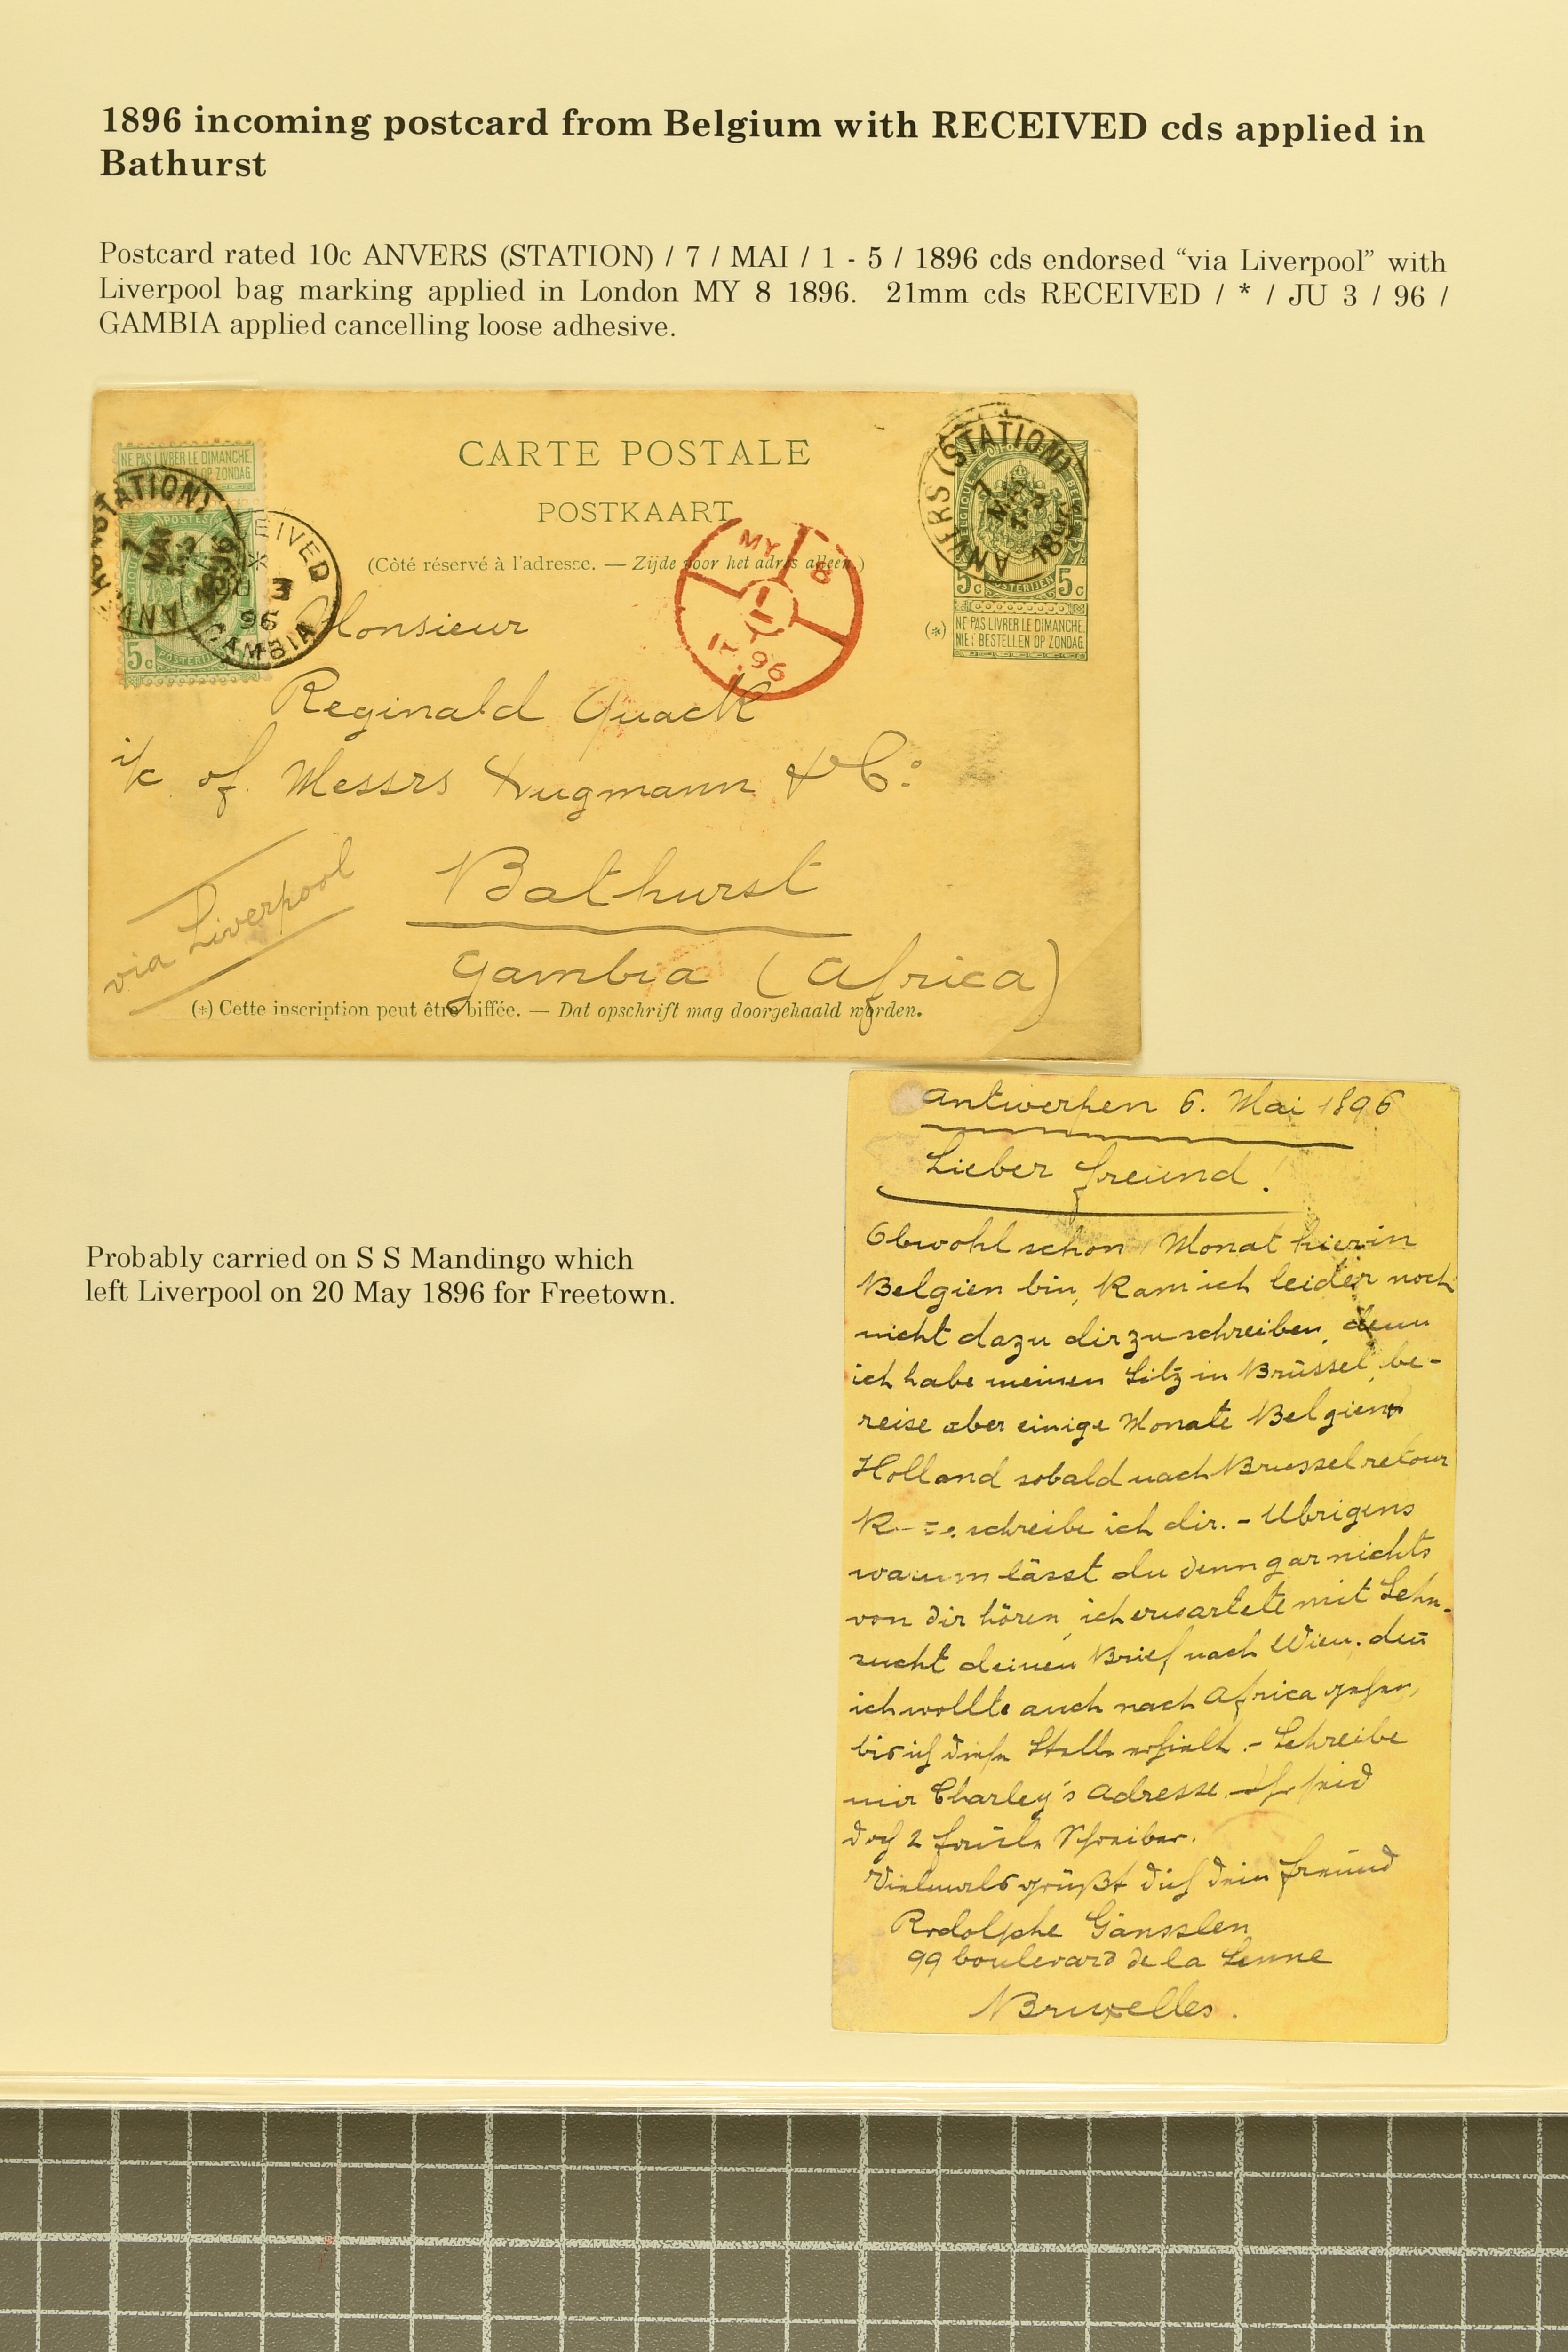 1896 incoming postcard from Belgium with RECEIVED cds applied in
Bathurst
Postcard rated 10c ANVERS (STATION) / 7 / MAI / 1 - 5 / 1896 cds endorsed “via Liverpool” with
Liverpool bag marking applied in London MY 8 1896. 21mm cds RECEIVED / * / JU 3 / 96 /
GAMBIA applied cancelling loose adhesive.
CARTE POSTALE
POSTKAART
(Côté réservé à l'adresse. — Zijde voor het adres alleen.)
NE PAS LIVRER LE DIMANCHE
OP ZONDAG
STATION)
POSTES
7
MAI
EIVED
*
JU 3
96
GAMBIA
5c
MY
8
96
ANVERS (STATION)
7
1896
5c POSTERIJEN 5c
(*) NE PAS LIVRER LE DIMANCHE.
NIET BESTELLEN OP ZONDAG.
Monsieur
Reginald Quack
of Messrs Hugmann & Co:
Bathurst
via Liverpool
Gambia (Africa)
(*) Cette inscription peut être biffée. — Dat opschrift mag doorgehaald worden.
Antwerpen 6. Mai 1896
Lieber Freund!
Obwohl schon 1 Monat hier in
Belgien bin, kam ich leider noch
nicht dazu dir zu schreiben, denn
ich habe meinen Sitz in Brüssel, be-
reise aber einige Monate Belgien +
Holland sobald nach Brussel retour
schreibe ich dir. - Ubrigens
warum lässt du denn gar nichts
von dir hören, ich erwartete mit Sehn-
sucht deinen Brief nach Wien, den̄
ich wollte auch nach Africa gehen,
bis ich diese Stelle erhielt. - Schreibe
mir Charley's Adresse. Ihr seid
doch 2 faule Schreiber.
Vielmals grüßt dich dein Freund
Rodolphe Gänsslen
99 boulevard de la Senne
Bruxelles.
Probably carried on S S Mandingo which
left Liverpool on 20 May 1896 for Freetown.